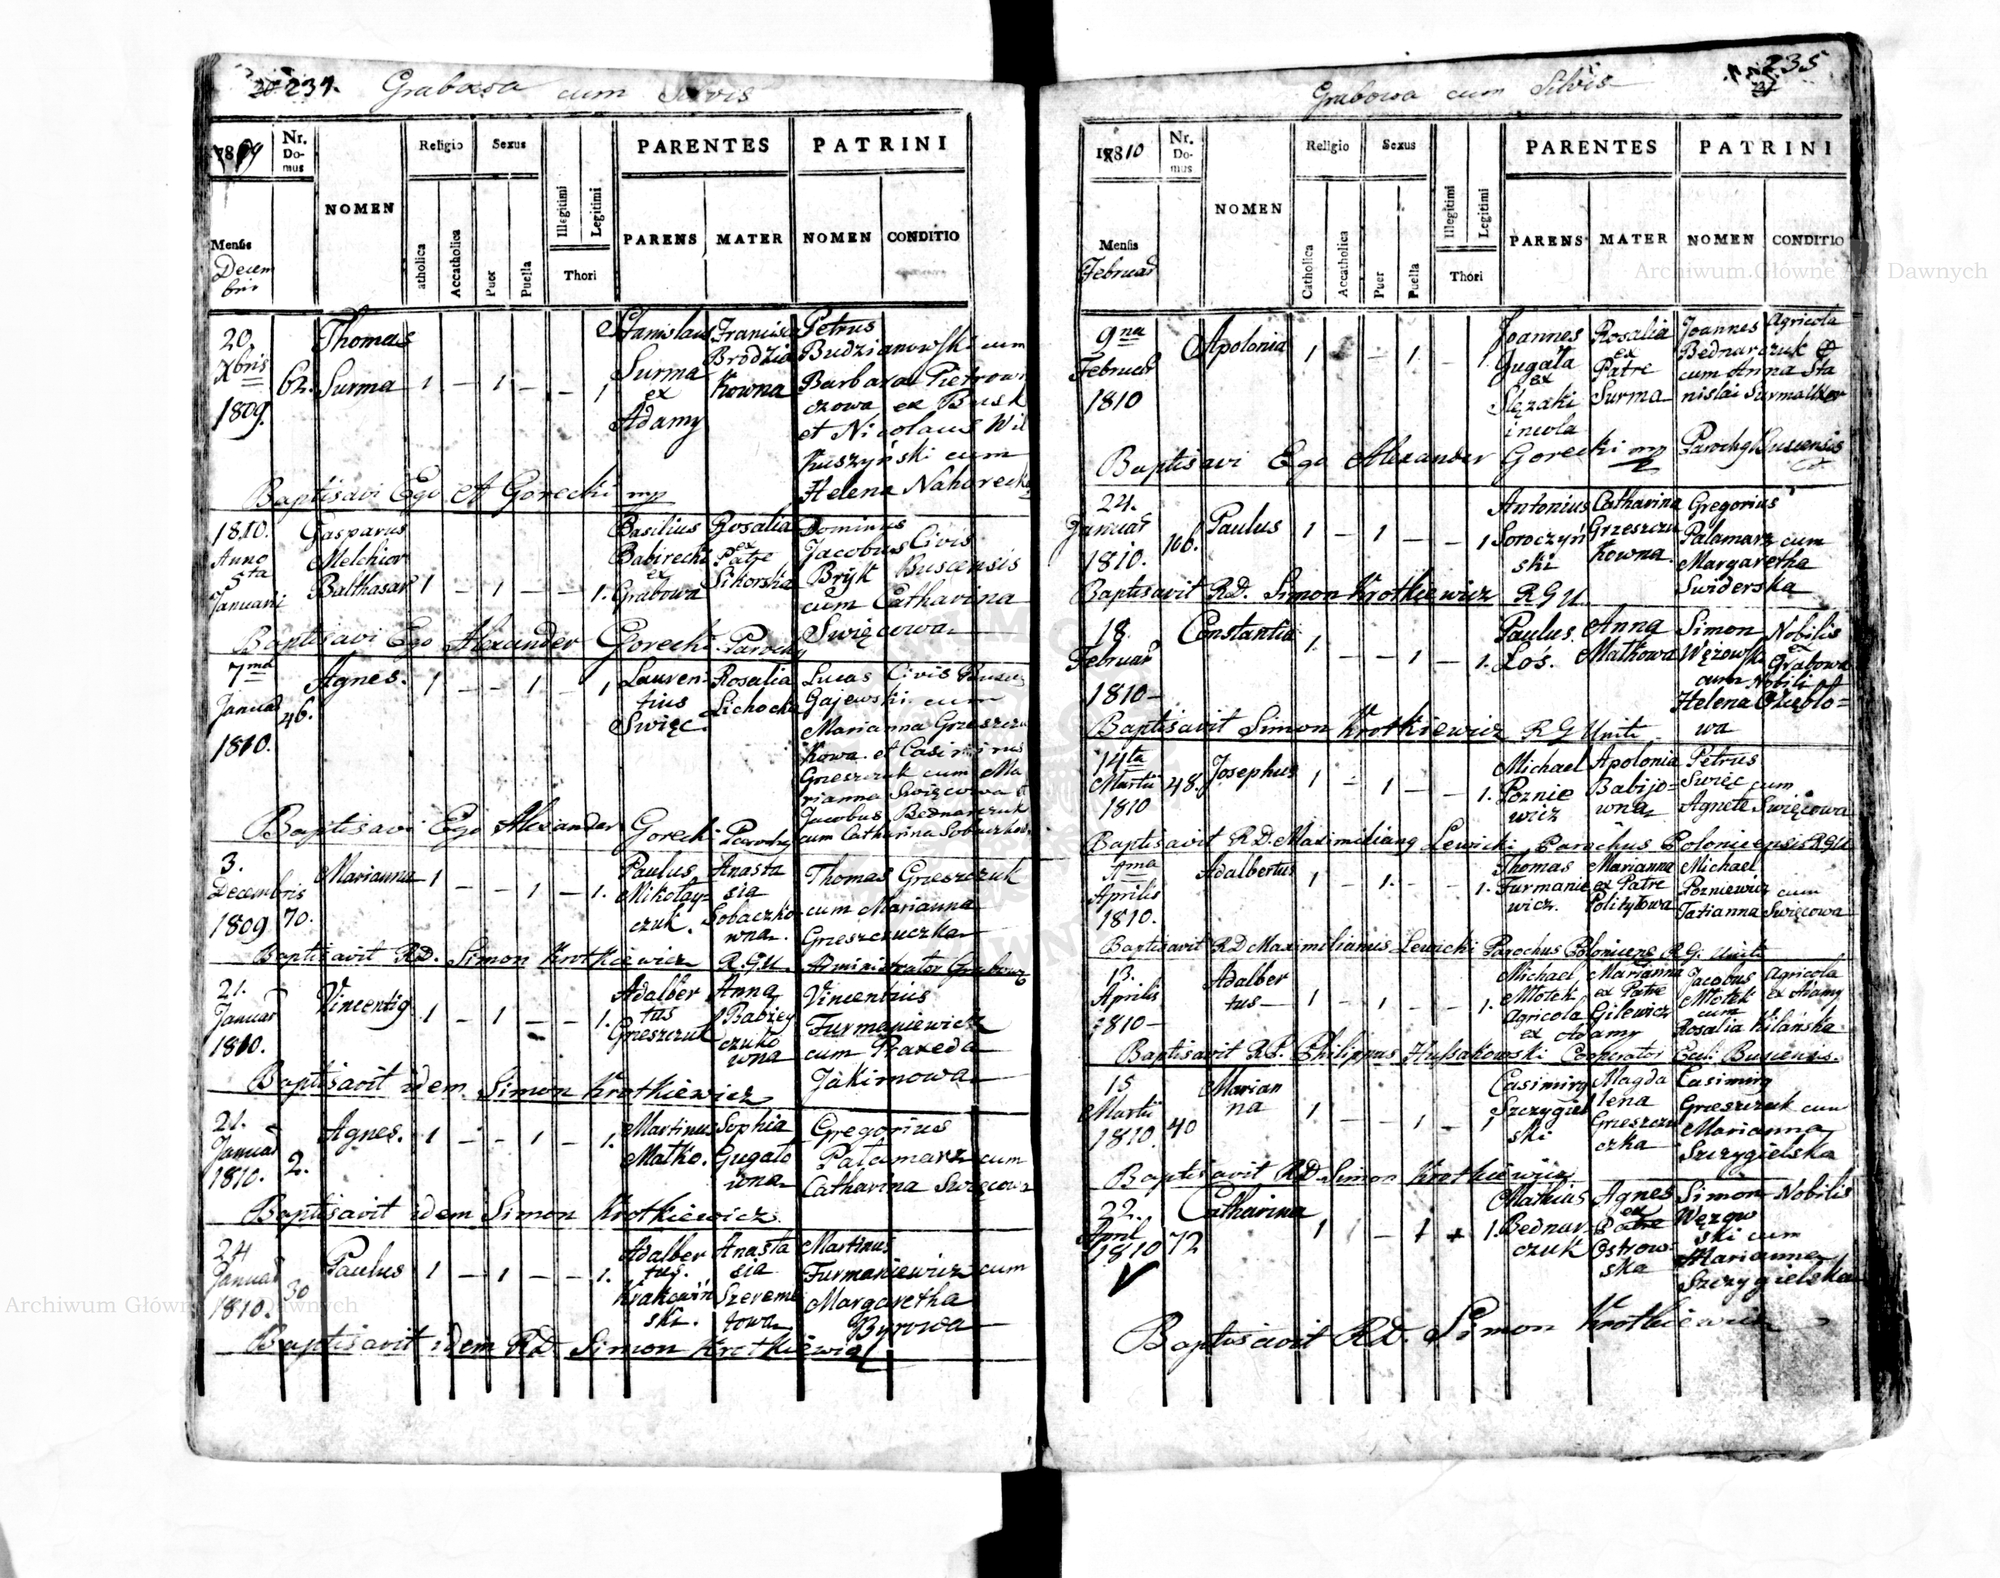 234.
Grabowa cum Silvis
1809
Nr. Domus
NOMEN
Religio
Sexus
PARENTES
PATRINI
Mensis
Decembris
Catholica
Accatholica
Puer
Puella
Illegitimi
Legitimi
Thori
PARENS
MATER
NOMEN
CONDITIO
20. Xbris 1809. 62. Thomas Surma 1 – 1 – – 1 Stanislaus Surma ex Adamy Francisca Brodziakowna Petrus Budzianowski cum
Barbara Pietrowiczowa ex Busk
et Nicolaus Wil
kuszyński cum
Helena Nahorecka
Baptisavi Ego A Gorecki mp
1810. Anno 5ta Januarii Gasparus Melchior Balthasar 1 – 1 – – 1. Basilius Babirecki ex Grabowa Rosalia ex Patre Sikorska Dominus
Jacobus Civis
Bryk Buscensis
cum Catharina
Swięcowa
Baptisavi Ego Alexander Gorecki Parochg
7ma Januar 1810. 46. Agnes. 1 – – 1 – 1 Laurentius Swięc. Rosalia Lichocka Lucas Civis
Gajewski cum
Marianna Grzeszczu
kowa et Casimirus
Grzeszczuk cum Ma
rianna Swięcowa et
Jacobus Bednarczuk
cum Catharina
Baptisavi Ego Alexander Gorecki Parochg
3. Decembris 1809 70. Marianna 1 – – 1 – 1. Paulus Mikołayczuk. Anastasia Sobaczkowna Thomas Grzeszczuk
cum Marianna
Grzeszczuczka
Baptisavit RD. Simon Krotkiewicz R.G.U. Administrator
21. Januar 1810. Vincentig 1 – 1 – – 1. Adalbertus Grzeszczuk Anna Vincentius
Furmaniewicz
cum Praxeda
Jakimowa
Baptisavit idem Simon Krotkiewicz
21. Januar 1810. 2. Agnes. 1 – – 1 – 1. Martinus Małko. Sophia Gugałowna Gregorius
Palamarz cum
Catharina
Baptisavit idem Simon Krotkiewicz
24 Januar 1810. 30 Paulus 1 – 1 – – 1. Adalbertus. Krakowiński. Anastasia Szeremetowa Martinus
Furmaniewicz cum
Margaretha
Byrowa
Baptisavit idem RD. Simon Krotkiewicz
235
Grabowa cum Silvis
1810
Nr. Domus
NOMEN
Religio
Sexus
PARENTES
PATRINI
Mensis
Februar
Catholica
Accatholica
Puer
Puella
Illegitimi
Legitimi
Thori
PARENS
MATER
NOMEN
CONDITIO
9na Februar 1810 Apolonia 1 – – 1 – 1. Joannes Gugała ex Slęzaki incola Rosalia ex Patre Surma Joannes Agricola
Bednarczuk et
cum Anna Sta
nislai Surma
Baptisavi Ego Alexander Gorecki mp Parochg Buscensis
24. Januar 1810. 106. Paulus 1 – 1 – – 1 Antonius Soroczyński Catharina Grzeszczukowna Gregorius
Palamarz cum
Margaretha
Swiderska
Baptisavit RD. Simon Krotkiewicz RGU.
18. Februar 1810 – Constantia 1. – – 1 – 1. Paulus Łoś. Anna Małkowa Simon Nobilis
Węzowski ex Grabowa
cum Nobili
Helena
wa
Baptisavit Simon Krotkiewicz RG Uniti
14ta Martii 1810 48. Josephus 1 – 1 – – 1. Michael Pozniewicz Apolonia Babijowna Petrus
Swięc cum
Agnete Swięcowa
Baptisavit R.D. Maximiliang Lewicki Parochus Polonicensis RGU
Aprilis 1810. Adalbertus 1 – 1. – – 1. Thomas Furmaniewicz. Marianna ex Patre Politytowa Michael
Pozniewicz cum
Tatianna Swięcowa
Baptisavit RD Maximilianus Lewicki Parochus R.G. Uniti
13. Aprilis 1810 – Adalbertus 1 – 1 – – 1. Michael Młotek Agricola ex Adamy Marianna ex Patre Gilewicz Jacobus Agricola
Młotek ex Adamy
cum
Rosalia Kilańska
Baptisavit R.P. Philippus Hussakowski Cooperator Eccl. Buscensis.
15 Martii 1810. 40 Marianna 1 – – 1 – 1 Casimirg Szczygielski Magdalena Grzeszczuczka Casimirg
Grzeszczuk cum
Marianna
Szczygielska
Baptisavit RD Simon Krotkiewicz
22. April 1810 72 Catharina 1 – 1 1. Mathius Bednarczuk Agnes ex Patre Ostrowska Simon Nobilis
Węzow
ski cum
Marianna
Szczygielska
Baptisavit RD. Simon Krotkiewicz
Archiwum Główne Akt Dawnych
Archiwum Główne Akt Dawnych